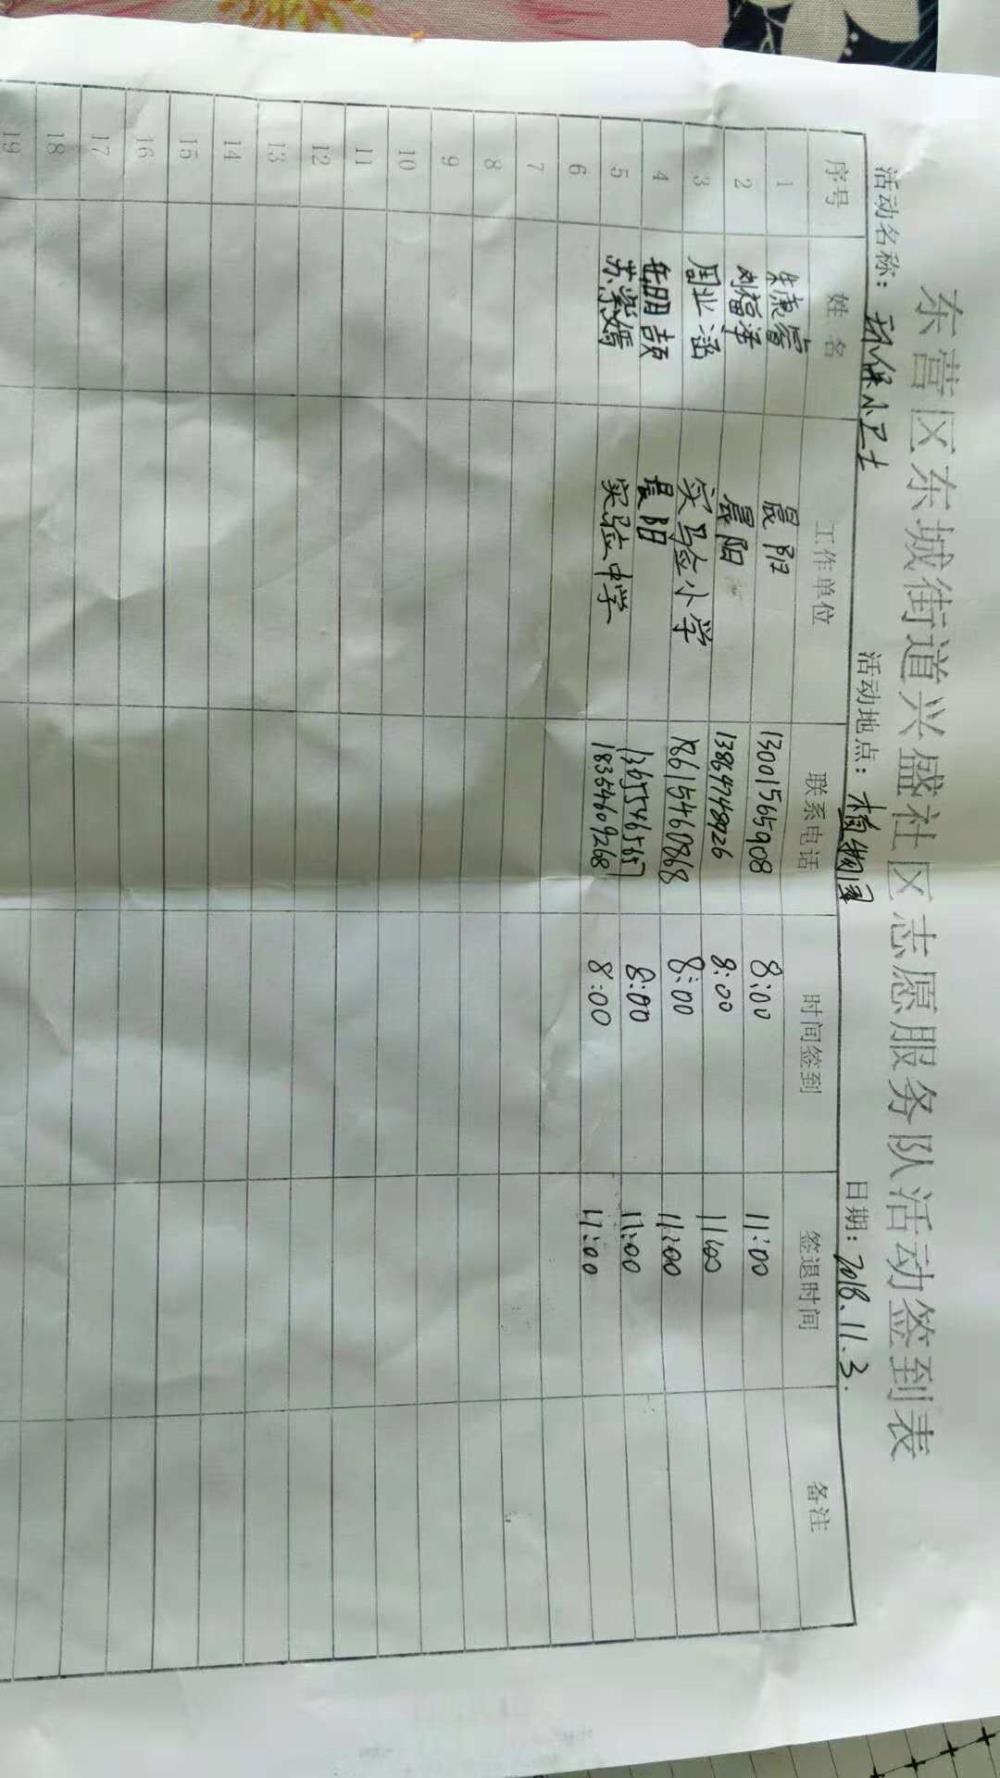 东营区东城街道兴盛社区志愿服务队活动签到表
活动名称：环保小卫士 活动地点：植物园 日期：2018.11.3.
序号 姓名 工作单位 联系电话 时间签到 签退时间 备注
1 朱康睿 晨阳 13001565908 8:00 11:00
2 晨阳 8:00 11:00
3 周业涵 实验小学 18615460868 8:00 11:00
4 晨阳 8:00 11:00
5 苏紫嫣 实验中学 18354609268 8:00 11:00
6
7
8
9
10
11
12
13
14
15
16
17
18
19